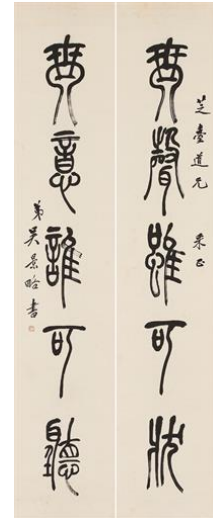 芝臺道兄 正
琴聲雖可狀
琴意誰可聽
弟吳景略書